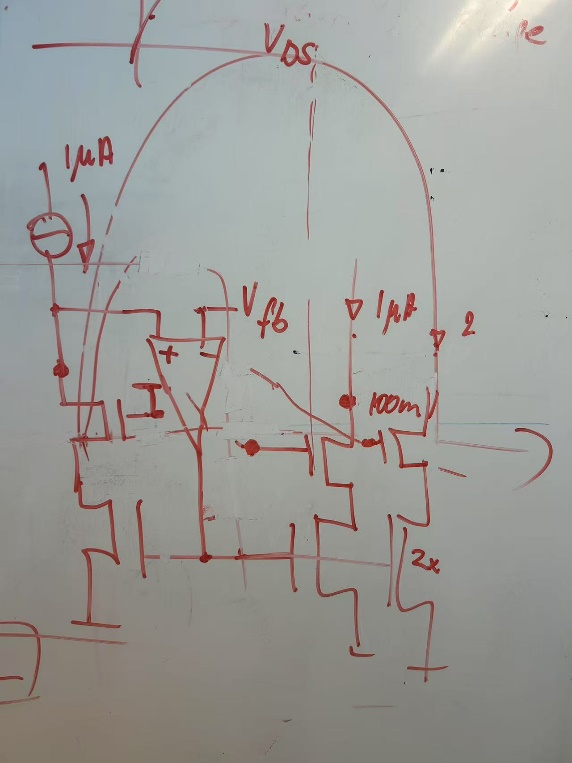 V_DS
1μA
V_fb
1μA
2
100m
2x